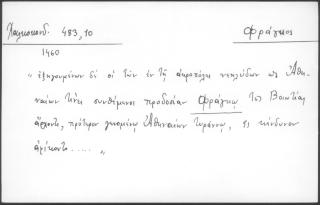 Χαλκοκονδ. 483,10 Φράγκος
1460
" ἐξηγουμένων δὲ οἱ τῶν ἐν τῇ ἀκροπόλει νεηλύδων ὡς Ἀθη-
ναίων τινὲς συνθέμενοι προδοσίαν Φράγκῳ τῷ Βοιωτίας
ἄρχοντι, πρότερον γενομένῳ Ἀθηναίων τυράννῳ, ἐς κίνδυνον
ἀφίκοντο..... "